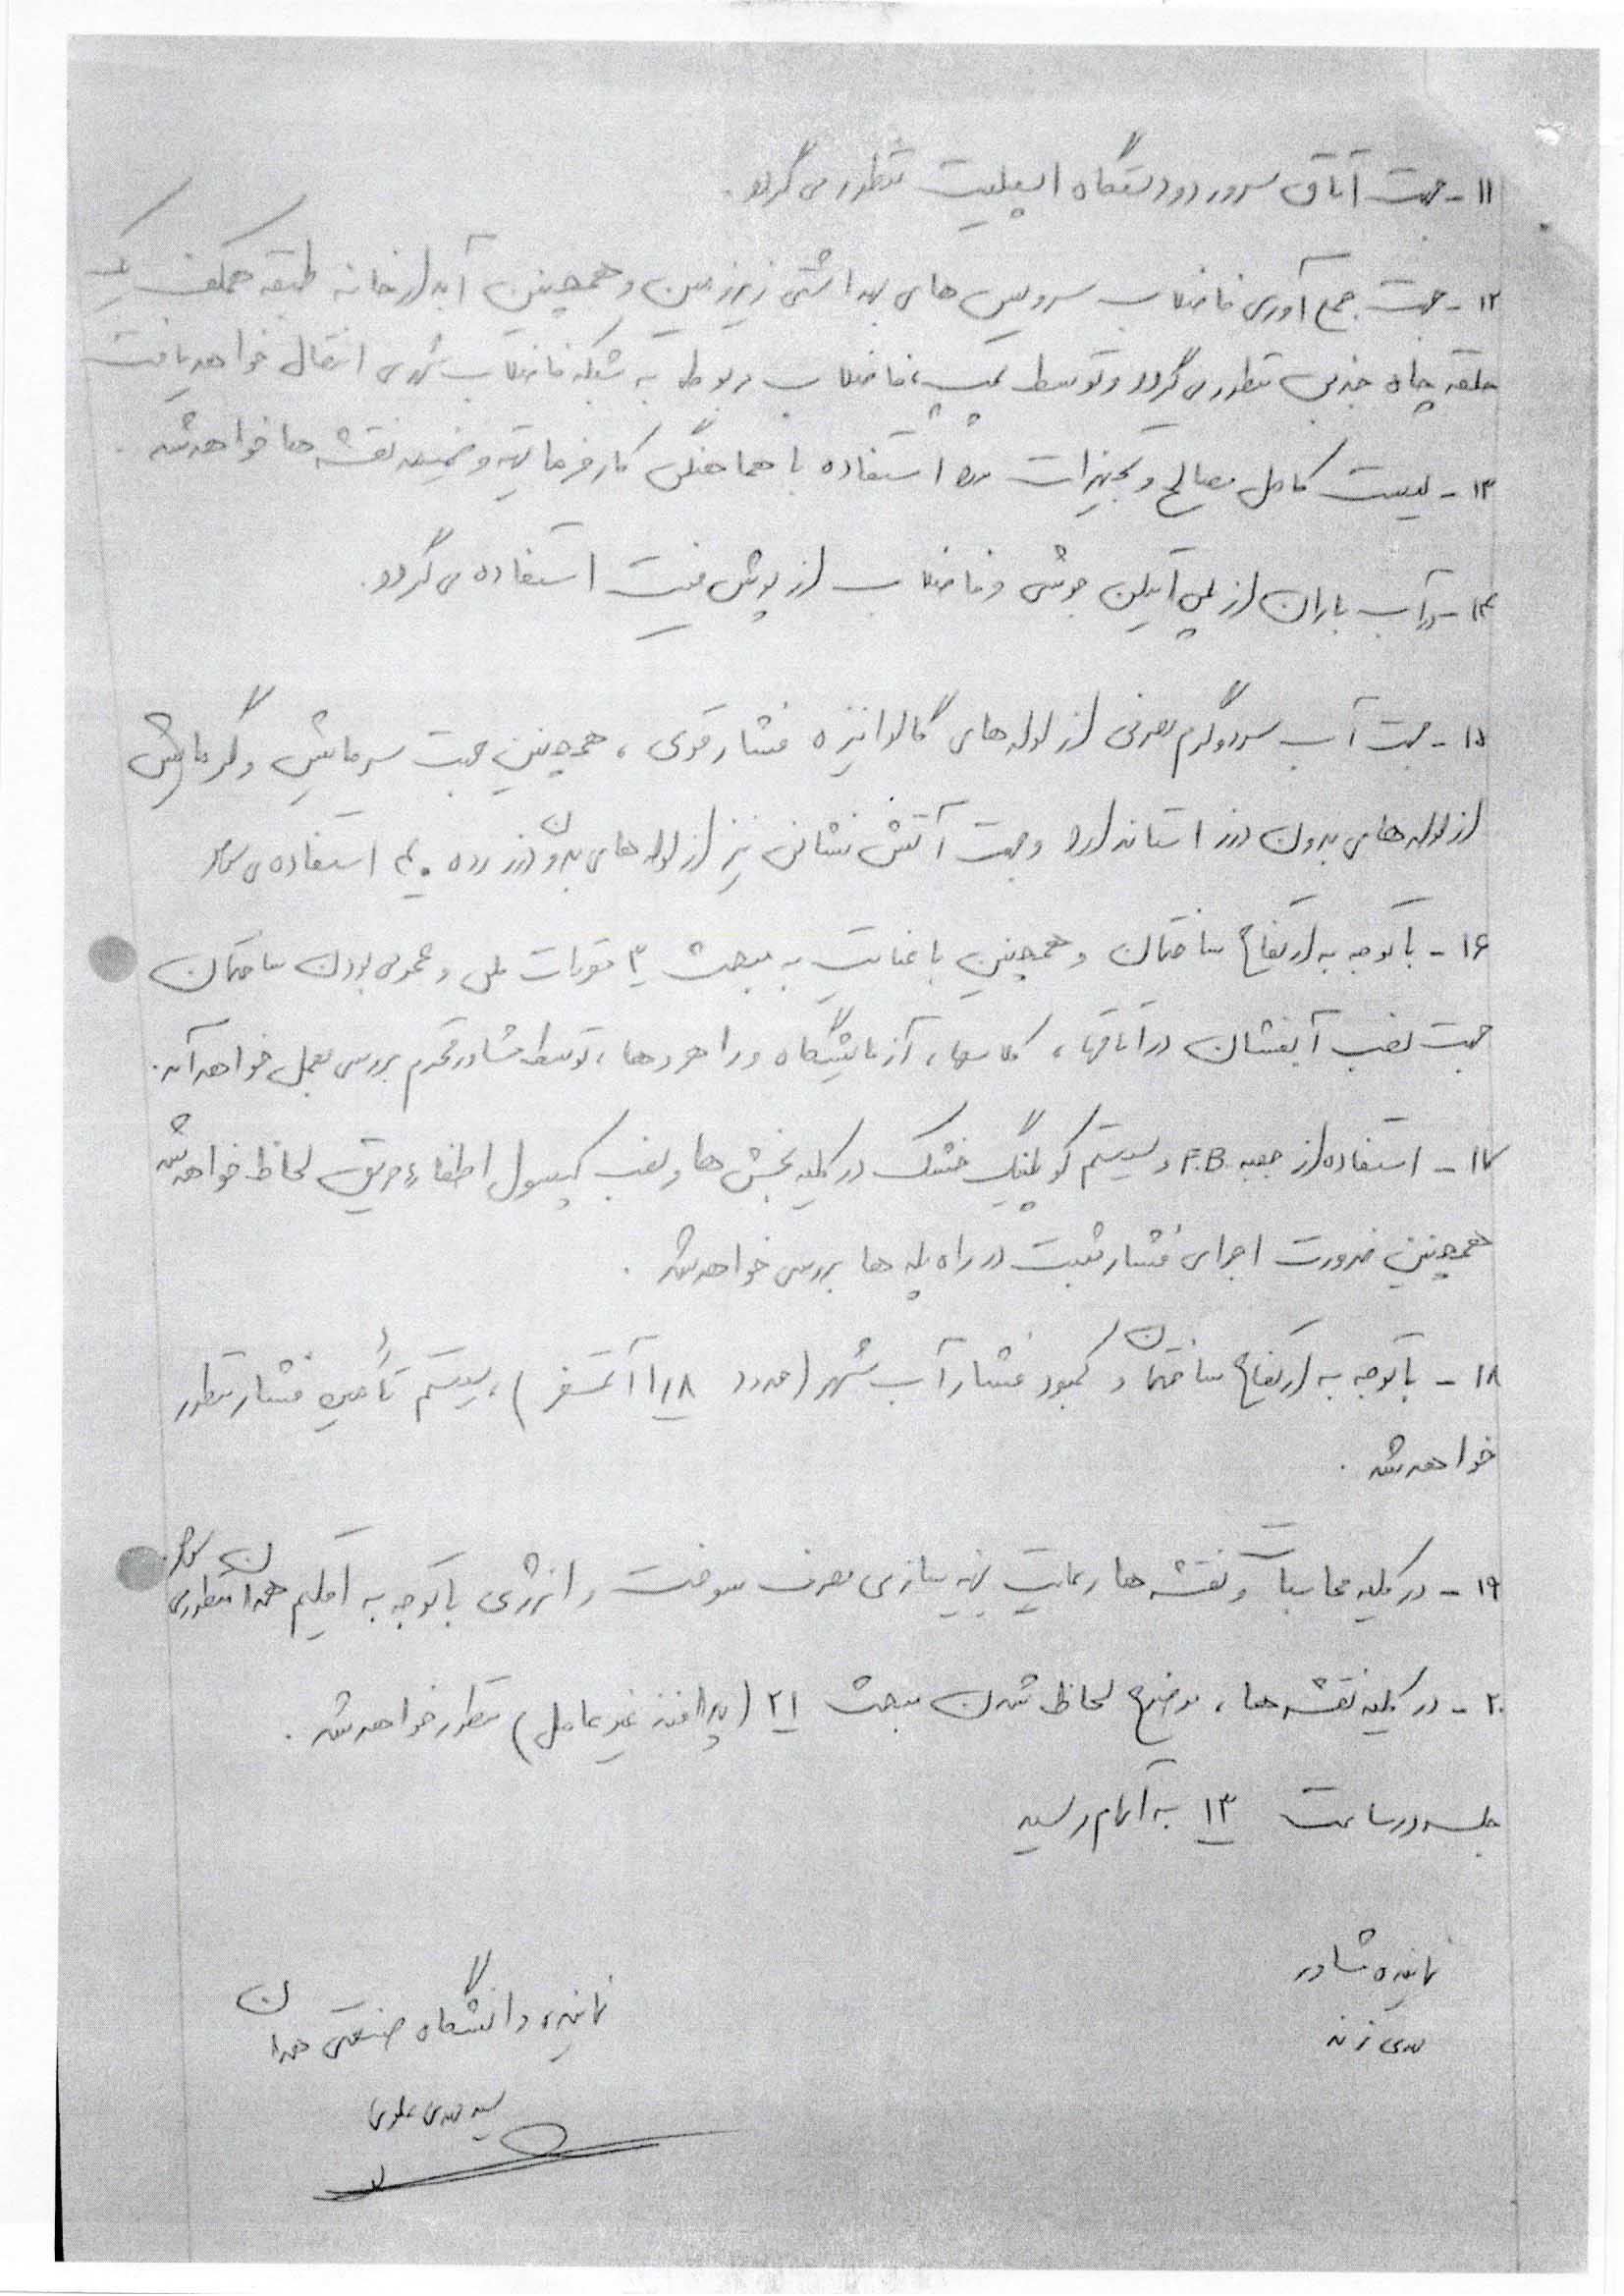 ۱۱- جهت اتاق سرور دو دستگاه اسپلیت منظور می گردد.
۱۲- جهت جمع آوری فاضلاب سرویس های بهداشتی زیرزمین و همچنین آبدارخانه طبقه همکف یک
حلقه چاه جذبی منظور می گردد و توسط پمپ، فاضلاب مربوطه به شبکه فاضلاب شهری انتقال خواهد یافت
۱۳- لیست کامل مصالح و تجهیزات مورد استفاده با هماهنگی کارفرما تهیه و ضمیمه نقشه ها خواهد شد.
۱۴- آب باران از پلی اتیلن جوشی و فاضلاب از پوش فیت استفاده می گردد.
۱۵- جهت آب سرد و گرم مصرفی از لوله های گالوانیزه فشار قوی، همچنین جهت سرمایش و گرمایش
از لوله های بدون درز استاندارد و جهت آتش نشانی نیز از لوله های بدون درز رده ۴۰ استفاده می شود
۱۶- با توجه به ارتفاع ساختمان و همچنین با عنایت به مبحث ۳ مقررات ملی و عمومی بودن ساختمان
جهت نصب آبفشان در اتاقها، کلاسها، آزمایشگاه و راهروها، توسط مشاور محترم بررسی بعمل خواهد آمد.
۱۷- استفاده از جعبه F.B و سیستم کوپلینگ خشک در کلیه بخش ها و نصب کپسول اطفاء حریق لحاظ خواهد شد
همچنین ضرورت اجرای فشار مثبت در راه پله ها بررسی خواهد شد.
۱۸- با توجه به ارتفاع ساختمان و کمبود فشار آب شهر (حدود ۱/۸ اتمسفر)، سیستم تأمین فشار منظور
خواهد شد.
۱۹- در کلیه محاسبات و نقشه ها رعایت بهینه سازی مصرف سوخت و انرژی با توجه به اقلیم همدان منظور می شود.
۲۰- در کلیه نقشه ها، موضوع لحاظ شدن مبحث ۲۱ (پدافند غیرعامل) منظور خواهد شد.
جلسه در ساعت ۱۳ به اتمام رسید
نماینده مشاور
نماینده دانشگاه صنعتی همدان
سید مهدی علوی